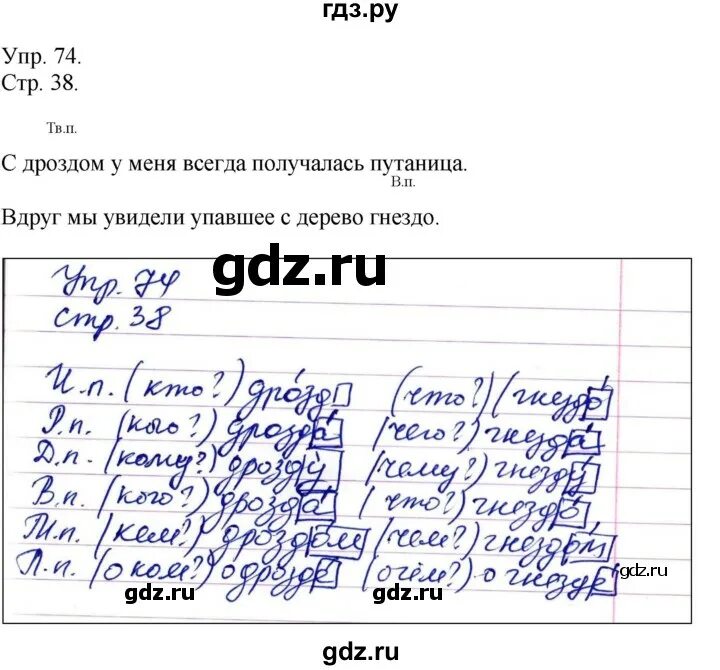 гдз.ру
Упр. 74.
Стр. 38.
Тв.п.
С дроздом у меня всегда получалась путаница.
В.п.
Вдруг мы увидели упавшее с дерево гнездо.
gdz.ru
Упр. 74
стр. 38
И.п. (кто?) дрозд (что?) (гнездо
Р.п. (кого?) дрозда (чего?) гнезда
Д.п. (кому?) дрозду (чему?) гнезду
В.п. (кого?) дрозда (что?) гнездо
Т.п. (кем?) дроздом (чем?) гнездом
П.п. (о ком?) о дрозде (о чём?) о гнезде
gdz.ru
gdz.ru
gdz.ru